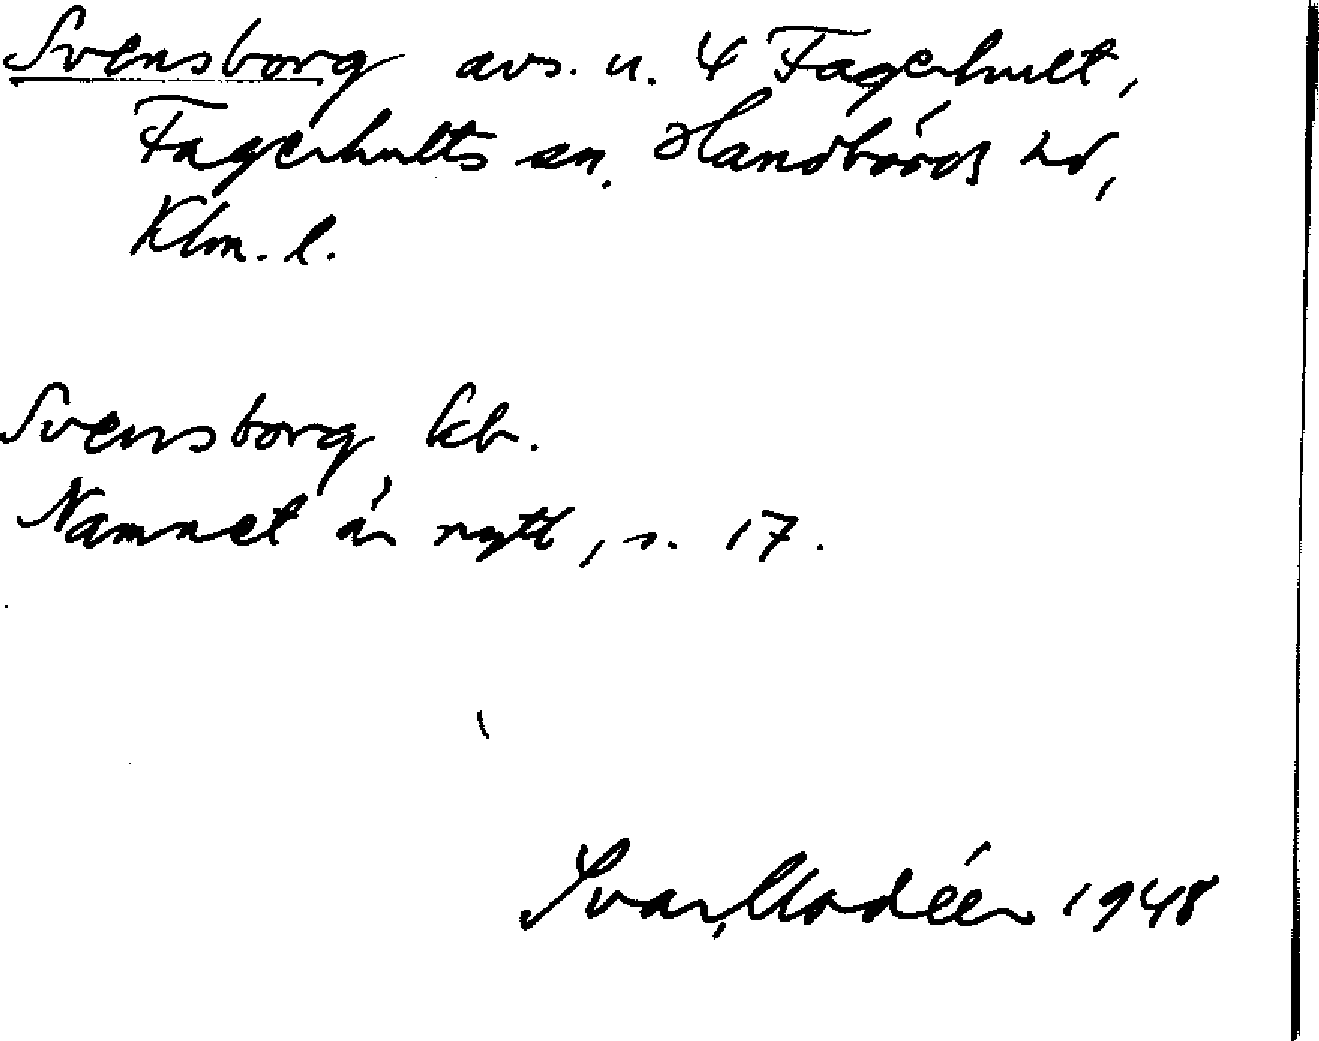 Svensborg avs. u. 4 Fagerhult,
Fagerhults sn. Handbörds hd,
Klm. l.
Svensborg kb.
Namnet är nytt, s. 17.
Ivar Modéer 1948